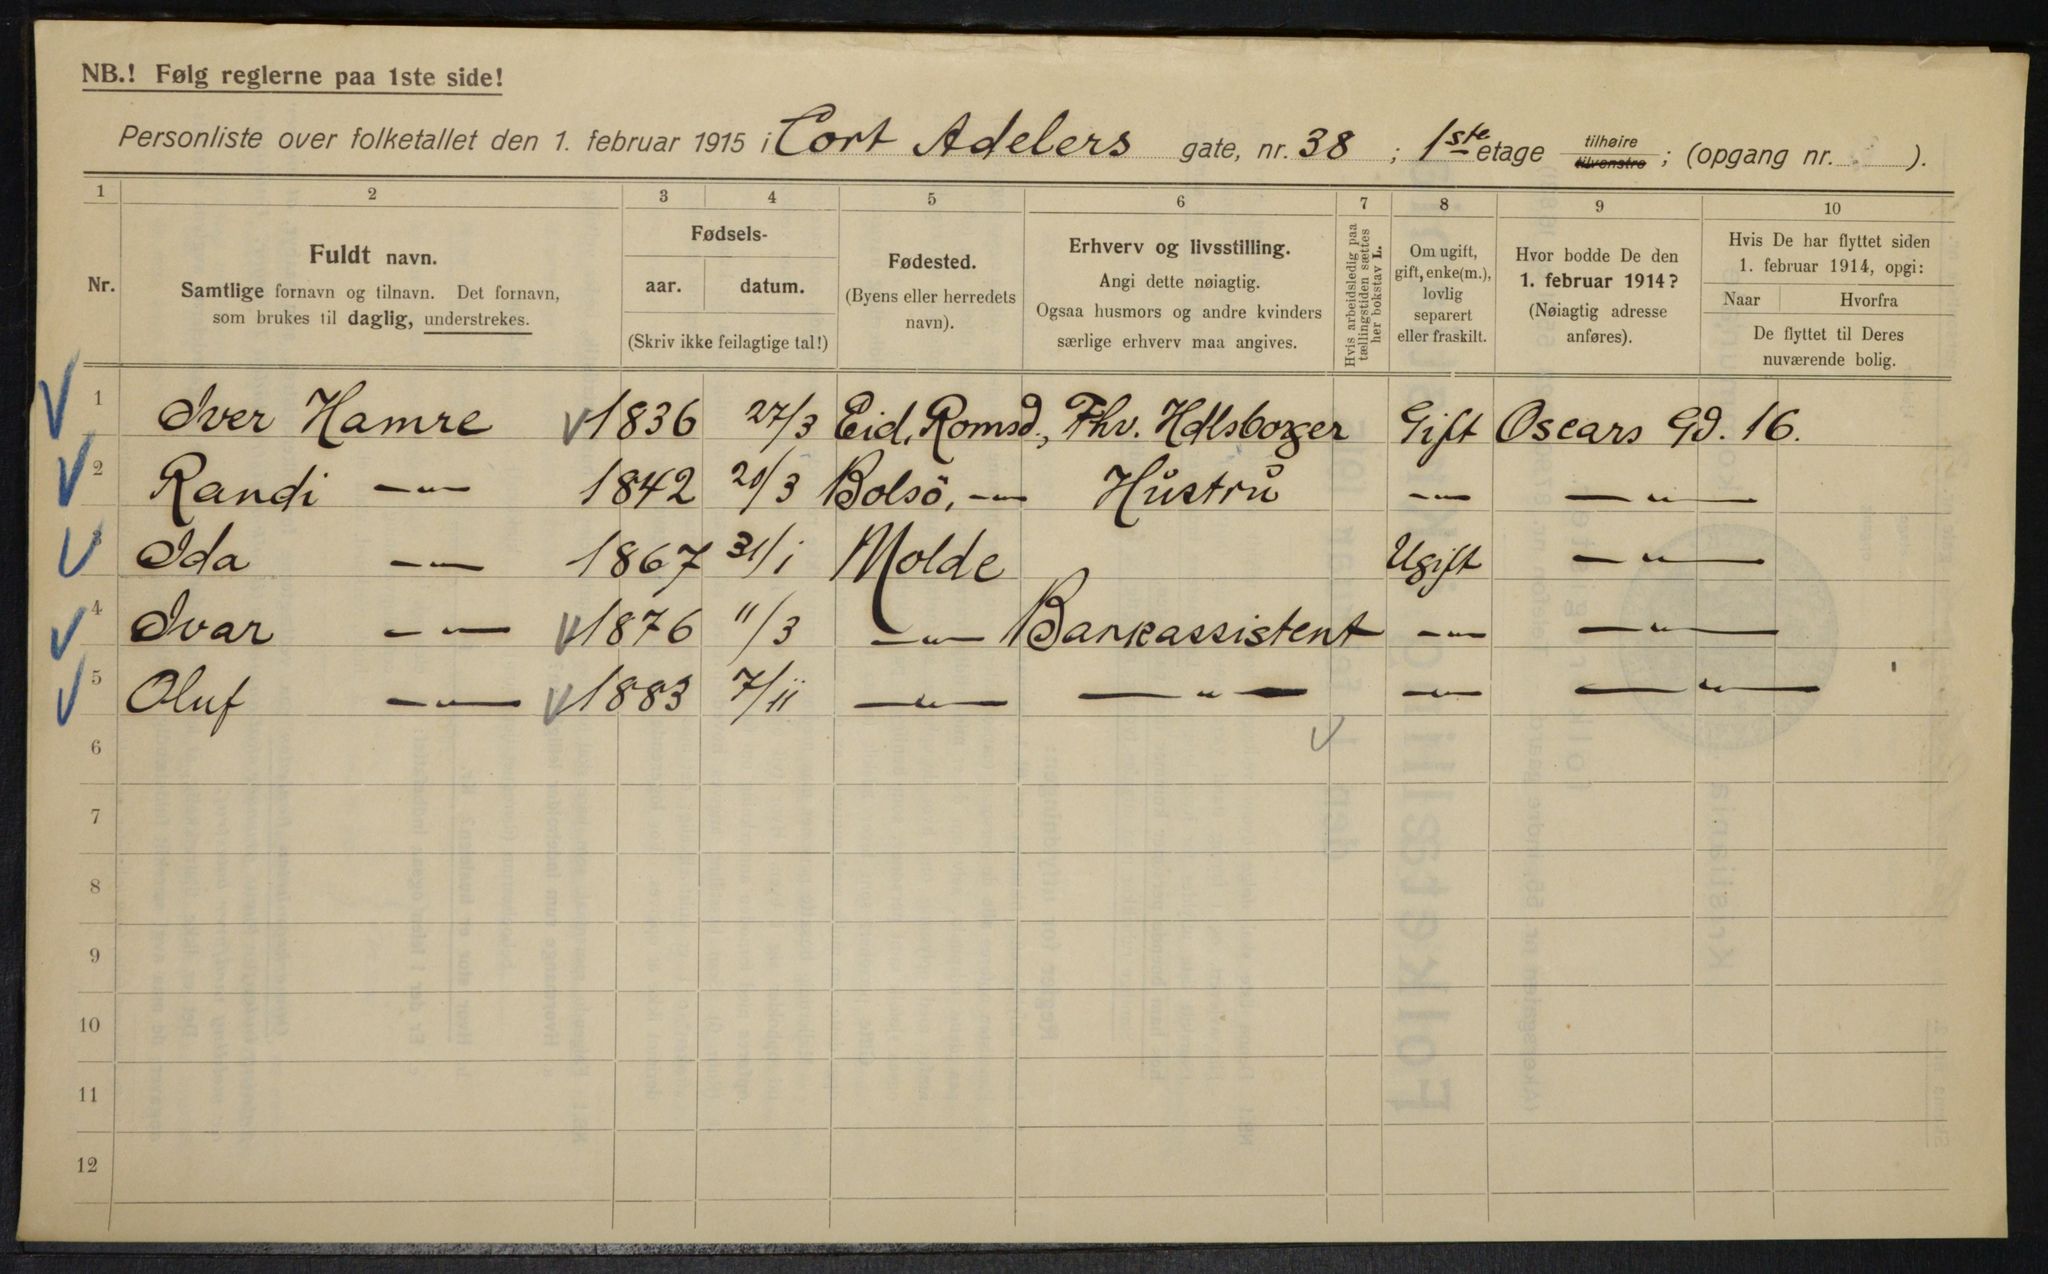 NB.! Følg reglerne paa 1ste side!
Personliste over folketallet den 1. februar 1915 i Cort Adelers gate, nr. 38 ; 1ste etage tilhøire tilvenstre ; (opgang nr. ).
1 2 3 4 5 6 7 8 9 10
Nr.
Fuldt navn.
Samtlige fornavn og tilnavn. Det fornavn,
som brukes til daglig, understrekes.
Fødsels-
aar. datum.
(Skriv ikke feilagtige tal!)
Fødested.
(Byens eller herredets
navn).
Erhverv og livsstilling.
Angi dette nøiagtig.
Ogsaa husmors og andre kvinders
særlige erhverv maa angives.
Hvis arbeidsledig paa
tællingstiden sættes
her bokstav L.
Om ugift,
gift, enke(m.),
lovlig
separert
eller fraskilt.
Hvor bodde De den
1. februar 1914?
(Nøiagtig adresse
anføres).
Hvis De har flyttet siden
1. februar 1914, opgi:
Naar Hvorfra
De flyttet til Deres
nuværende bolig.
1 Iver Hamre 1836 27/3 Eid, Romsd., Fhv. Hdlsborger Gift Oscars Gd. 16.
2 Randi —„— 1842 20/3 Bolsö, —„— Hustru —„— —„—
3 Ida —„— 1867 31/1 Molde Ugift —„—
4 Ivar —„— 1876 11/3 —„— Bankassistent —„— —„—
5 Oluf —„— 1883 7/11 —„— —„— —„— —„—
6
7
8
9
10
11
12